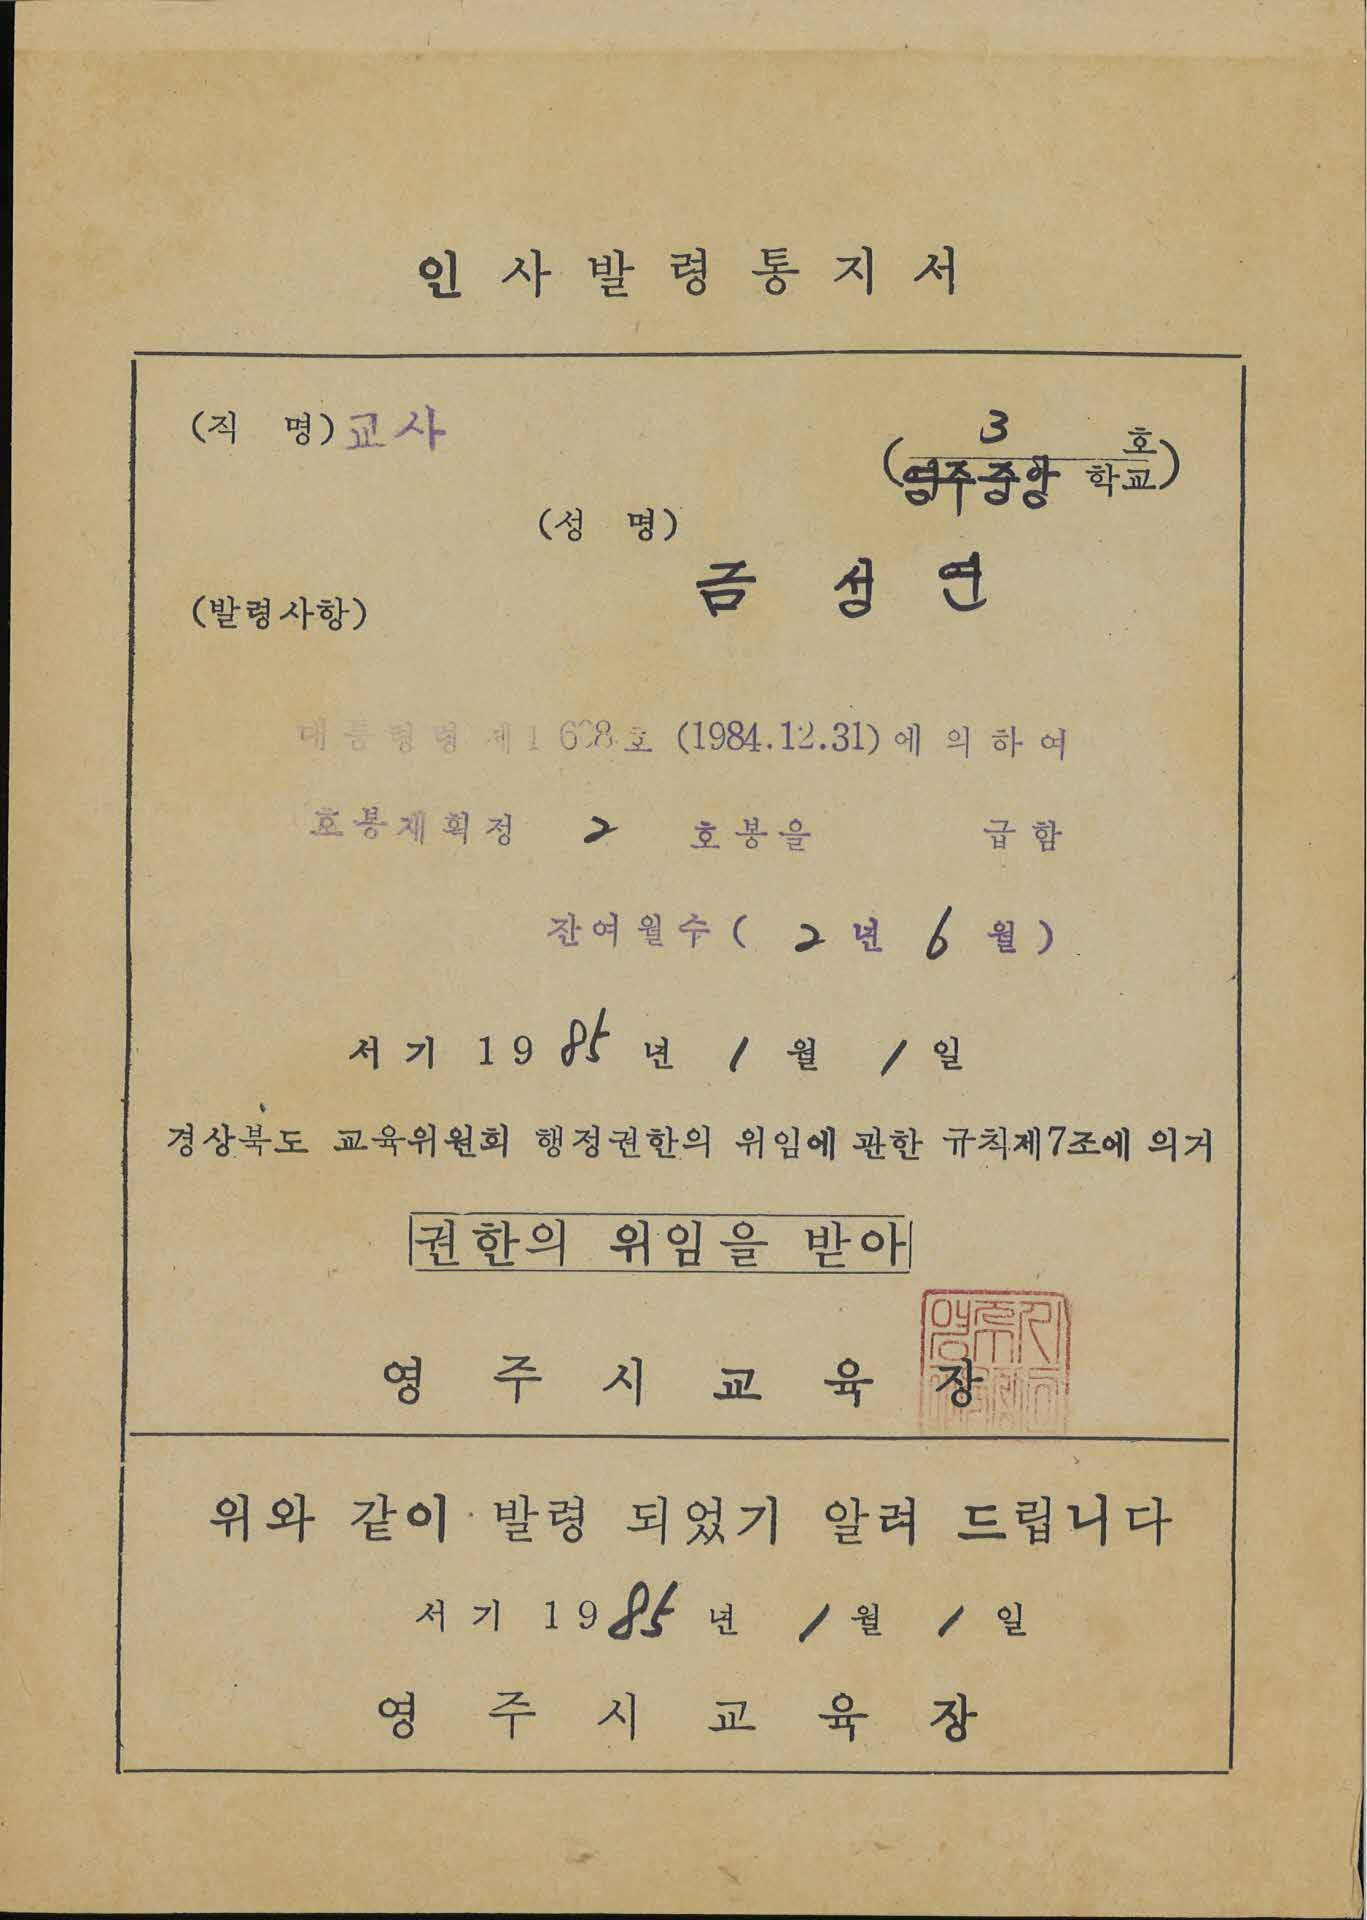 인사발령통지서
(직 명) 교사
( 3 호
영주중앙 학교)
(성 명)
금성연
(발령사항)
대통령령제 호 (1984.12.31)에 의하여
호봉재획정 2 호봉을 급함
잔여월수( 2년 6월)
서기 1985년 1월 1일
경상북도 교육위원회 행정권한의 위임에 관한 규칙제7조에 의거
권한의 위임을 받아
영주시교육장
위와 같이 발령 되었기 알려 드립니다
서기 1985년 1월 1일
영주시교육장